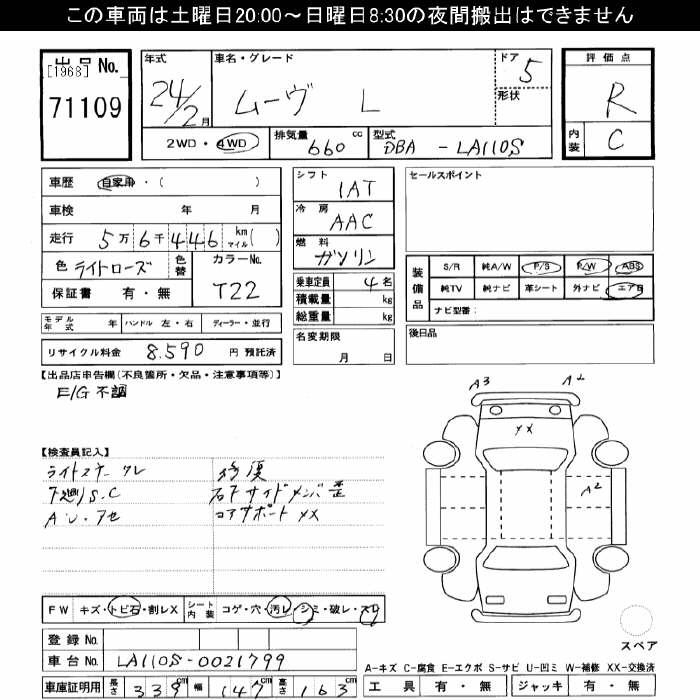 この車両は土曜日20:00～日曜日8:30の夜間搬出はできません
出品 No.
[1968]
71109
年式
24/2月
車名・グレード
ムーヴ L
ドア 5
形状
評価点
R
内装 C
2WD・4WD
排気量 660 cc
型式 DBA - LA110S
車歴 自家用・( )
車検 年 月
走行 5万6千446 km マイル( )
色 ライトローズ 色替
カラーNo. T22
保証書 有・無
モデル年式 年 ハンドル 左・右 ディーラー・並行
リサイクル料金 8.590 円 預託済
シフト 1AT
冷房 AAC
燃料 ガソリン
乗車定員 4名
積載量 kg
総重量 kg
名変期限
月 日
セールスポイント
装備品
S/R 純A/W P/S P/W ABS
純TV 純ナビ 革シート 外ナビ エアB
ナビ型番:
後日品
【出品店申告欄(不良箇所・欠品・注意事項等)】
E/G 不調
【検査員記入】
下廻りS.C
修復
右Fサイドメンバ歪
コアサポート XX
A3
A2
XX
A2
FW キズ・トビ石・割レX
シート内装 コゲ・穴・汚レ・シミ・破レ・スレ
登録 No.
車台 No. LA110S-0021799
車庫証明用 長さ 339 cm 幅 147 cm 高さ 163 cm
スペア
A-キズ C-腐食 E-エクボ S-サビ U-凹ミ W-補修 XX-交換済
工具 有・無 ジャッキ 有・無